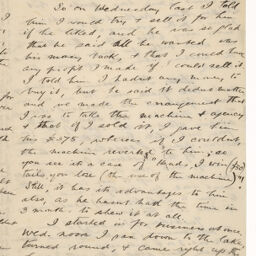 So on Wednesday last I told
him I would try & sell it for him
if he liked, and he was so glad
that he said all he wanted was
his money back, & that I could have
any profit I made if I could sell it.
I told him I hadn't any money to
buy it, but he said it didn't matter
and we made the arrangement that
I was to take the machine & agency
& that if I sold it, I gave him
his $375, whereas if I couldn't,
the machine reverted to him.
you see it's a case of "heads, I win
tails you lose (the use of the machine)"
Still, it has its advantages to him
also, as he hasn't had the time in
3 months to show it at all.
I started in for business at once.
Wed. noon I ran down to the Lake,
turned round, & came right up the